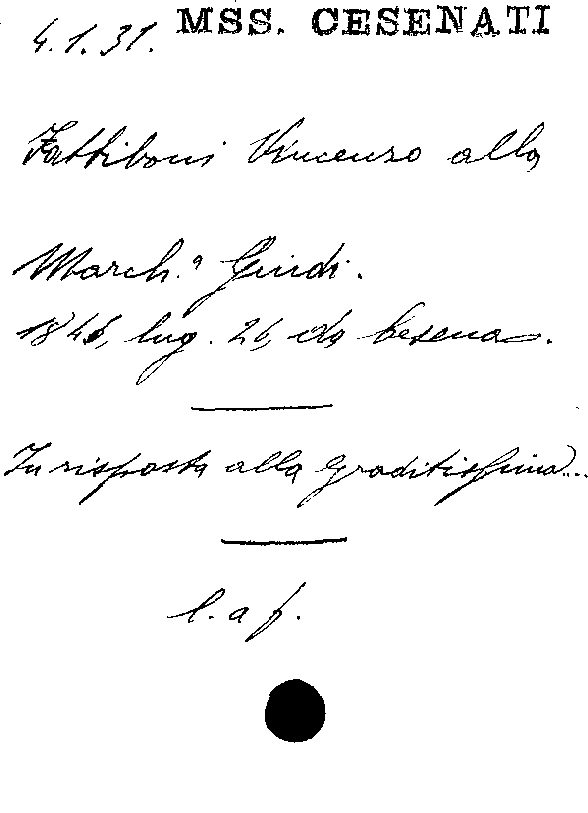 4.1.31. MSS. CESENATI
Fattiboni Vincenzo alla
March.ª Guidi.
lug. 26, da Cesena.
In risposta alla graditissima...
l. a f.